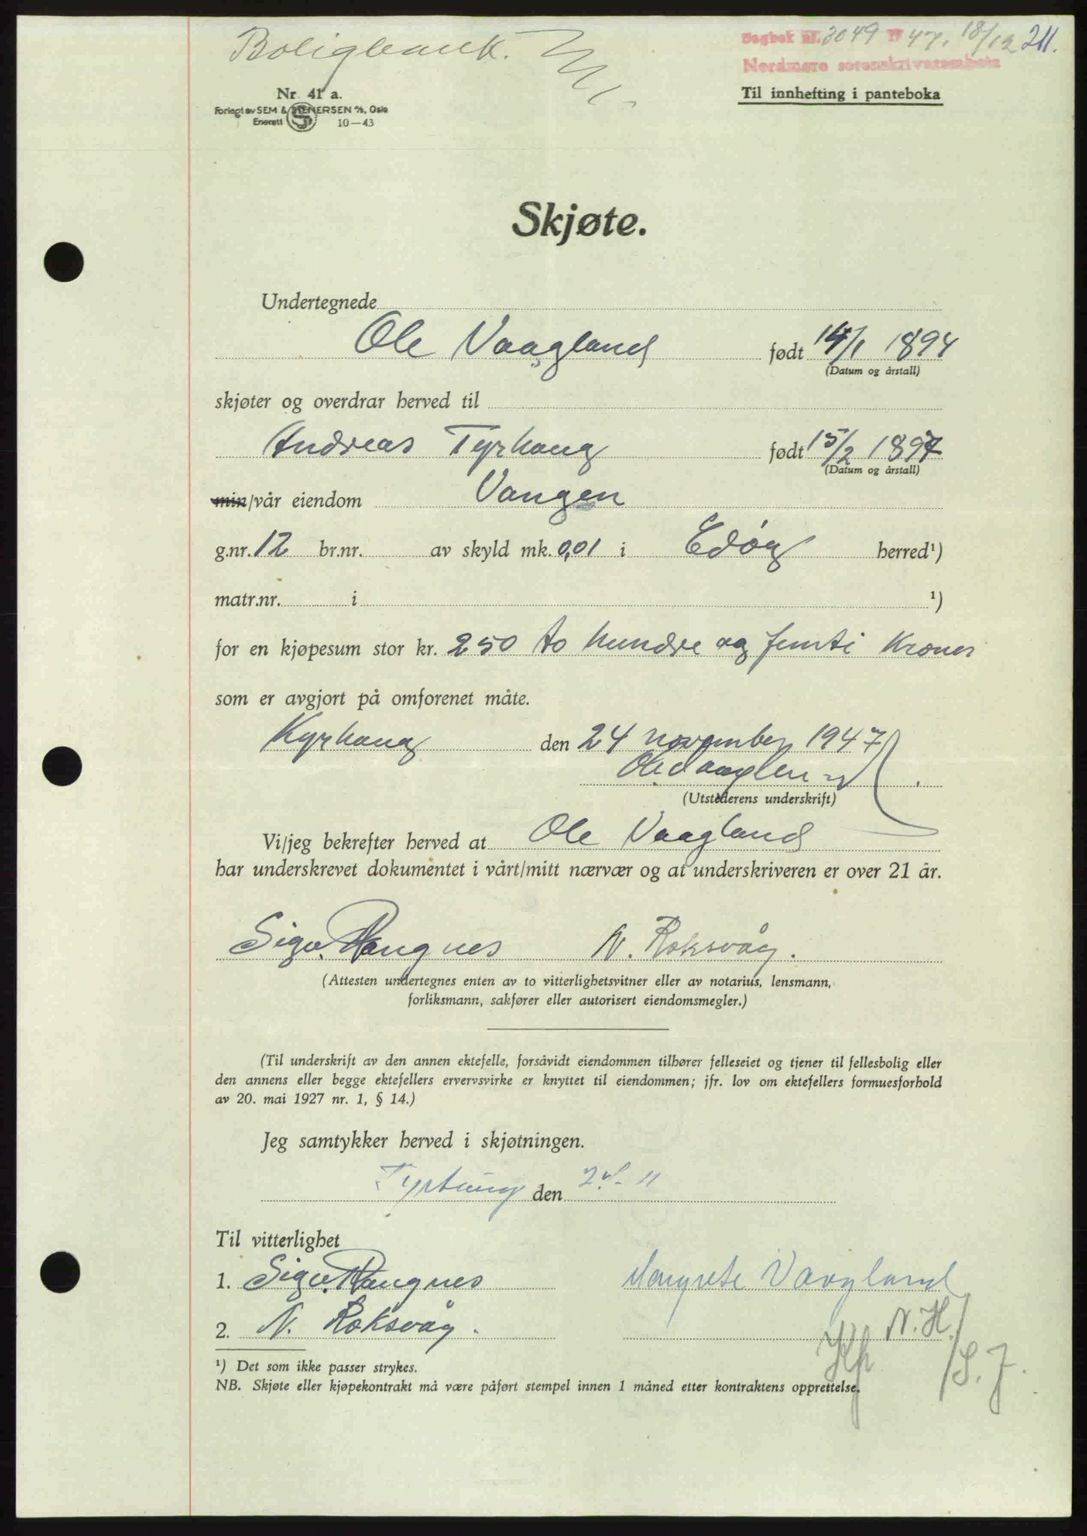 Boligbank.
Dagbok nr. 3049 19 47. 18/12 211.
Nordmøre sorenskriverembete
Nr. 41 a.
Til innhefting i panteboka
Forlagt av SEM & STENERSEN A/S, Oslo
Enerett 10—43
Skjøte.
Undertegnede
Ole Vaagland født 14/1 1894
(Datum og årstall)
skjøter og overdrar herved til
Andreas Tyrhaug født 15/2 1897
(Datum og årstall)
min/vår eiendom Vangen
g.nr. 12 br.nr. av skyld mk. 0,01 i Edøy herred¹)
matr.nr. i ¹)
for en kjøpesum stor kr. 250 to hundre og femti Kroner
som er avgjort på omforenet måte.
Kyrhaug den 24 november 1947
Ole Vaagland
(Utstederens underskrift)
Vi/jeg bekrefter herved at Ole Vaagland
har underskrevet dokumentet i vårt/mitt nærvær og at underskriveren er over 21 år.
Sigv. Rangnes N. Roksvåg.
(Attesten undertegnes enten av to vitterlighetsvitner eller av notarius, lensmann,
forliksmann, sakfører eller autorisert eiendomsmegler.)
(Til underskrift av den annen ektefelle, forsåvidt eiendommen tilhører felleseiet og tjener til fellesbolig eller
den annens eller begge ektefellers ervervsvirke er knyttet til eiendommen; jfr. lov om ektefellers formuesforhold
av 20. mai 1927 nr. 1, § 14.)
Jeg samtykker herved i skjøtningen.
Tyrhaug den 24-11
Til vitterlighet
1. Sigv. Rangnes Margrete Vaagland
2. N. Roksvåg. N. H.
Kp. S. J.
¹) Det som ikke passer strykes.
NB. Skjøte eller kjøpekontrakt må være påført stempel innen 1 måned etter kontraktens opprettelse.